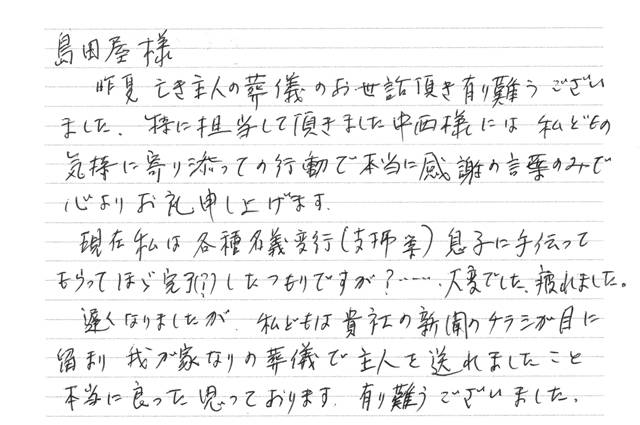 島田屋様
昨夏 亡き主人の葬儀のお世話頂き有り難うござい
ました。特に担当して頂きました中西様には 私どもの
気持に寄り添っての行動で本当に感謝の言葉のみで
心よりお礼申し上げます。
現在私は各種名義変更(支払等)息子に手伝って
もらってほぼ完了(?)したつもりですが?……大変でした、疲れました。
遅くなりましたが、私どもは貴社の新聞のチラシが目に
留まり 我が家なりの葬儀で主人を送れましたこと
本当に良った思っております。有り難うございました。